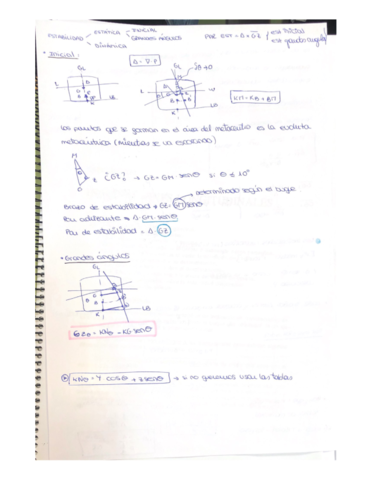 ESTABILIDAD
ESTÁTICA
INICIAL
GRANDES ÁNGULOS
DINÁMICA
PAR EST = Δ × GZ
est inicial
est grandes ángulos
• Inicial
Δ = ∇·ρ
KM = KB + BM
Los puntos que se forman en el área del metacentro es la evoluta
metacéntrica (Mientras se va escorando)
GZ = GM senθ si θ ≤ 10°
Determinado según el buque
Brazo de estabilidad → GZ = GM senθ
Par adrizante → Δ · GM senθ
Par de estabilidad = Δ GZ
• Grandes ángulos
GZθ = KNθ - KG senθ
KNθ = Y cosθ + Z senθ → si no queremos usar las tablas